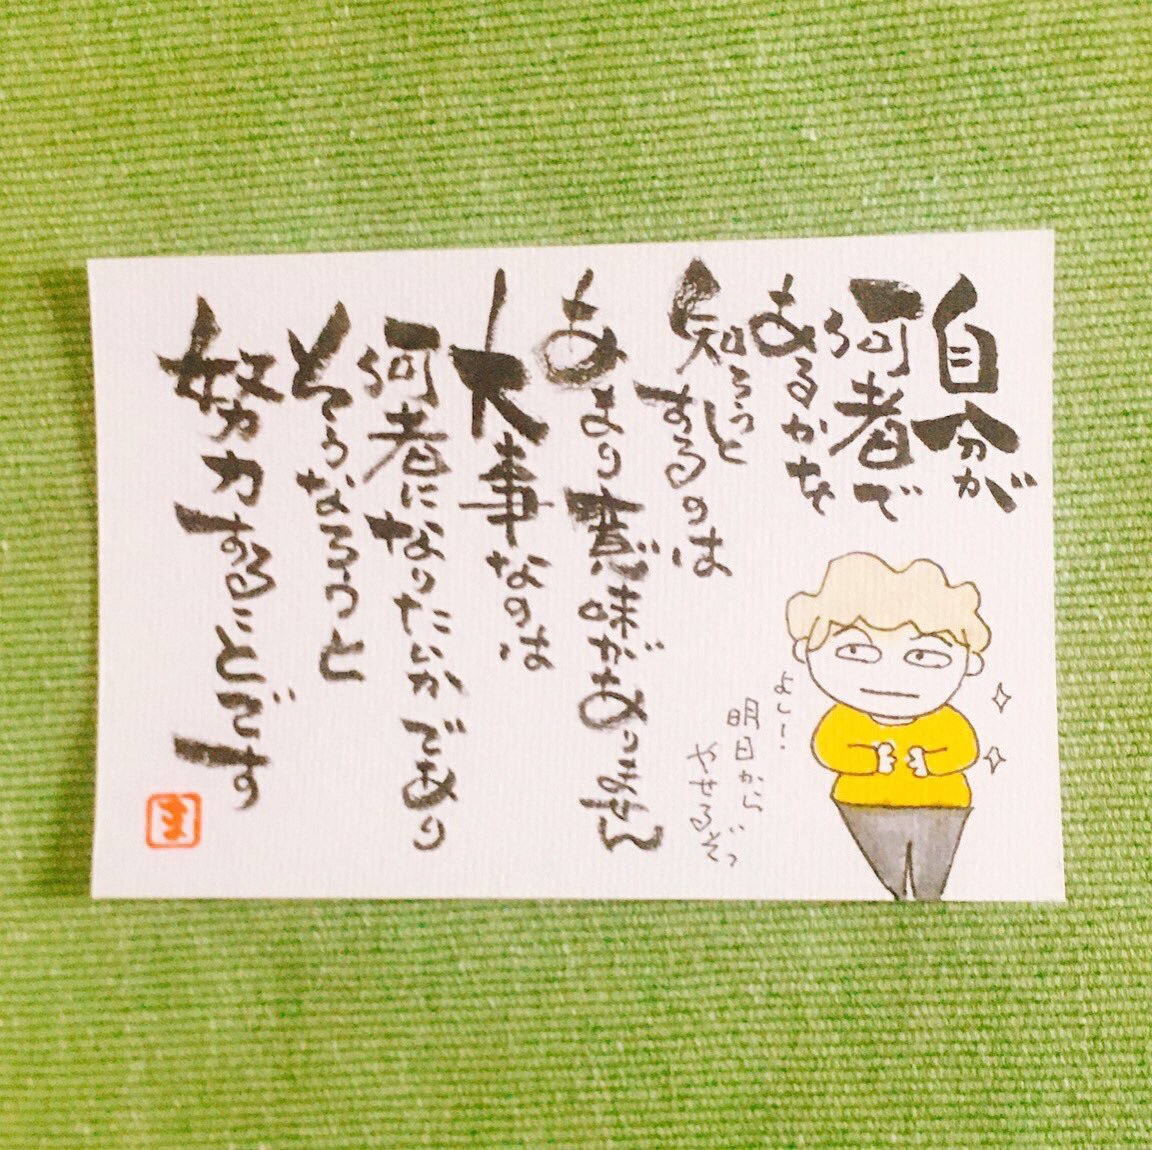 自分が
何者で
あるかを
知ろうと
するのは
あまり意味がありません
大事なのは
何者になりたいかであり
そうなろうと
努力することです
よし!
明日から
やせるぞっ
ま